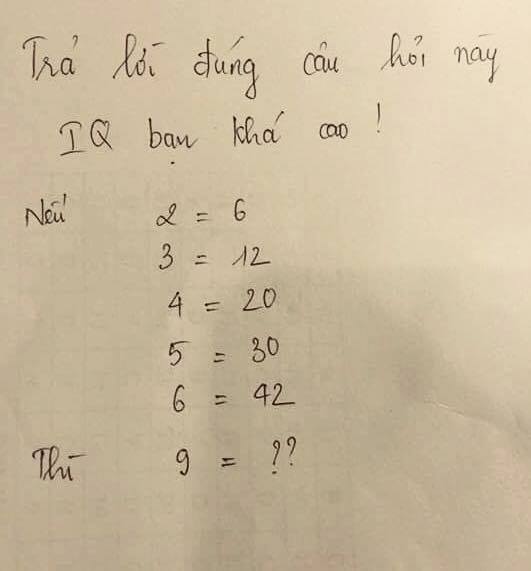 Trả lời đúng câu hỏi này
IQ bạn khá cao !
Nếu 2 = 6
3 = 12
4 = 20
5 = 30
6 = 42
Thì 9 = ??